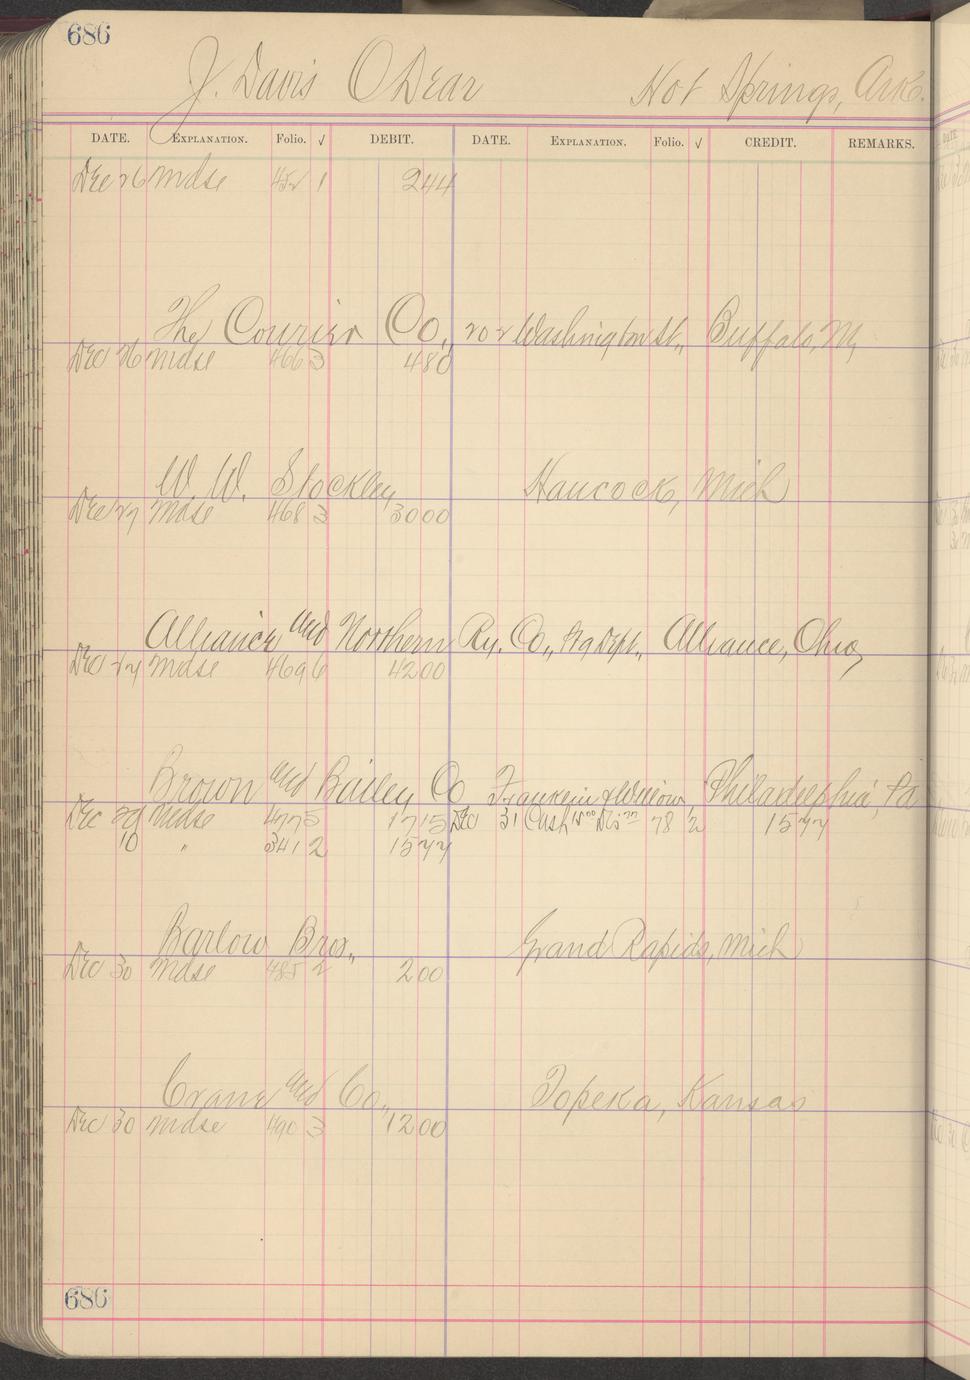 686
J. Davis O'Dear Hot Springs, Ark.
DATE. EXPLANATION. Folio. √ DEBIT. DATE. EXPLANATION. Folio. √ CREDIT. REMARKS.
Dec 26 Mdse 452 1 244
The Courier Co., 202 Washington St., Buffalo, N.Y.
Dec 26 Mdse 466 3 480
W. W. Stockley Hancock, Mich
Dec 27 Mdse 468 3 3000
Alliance and Northern Ry. Co., Dept., Alliance, Ohio,
Dec 27 Mdse 469 6 4200
Brown and Bailey Co Franklin & Willow, Philadelphia, Pa
Dec 29 Mdse 477 5 1715 Dec 31 Cash 15 00 Dis 77 78 2 1577
10 " 341 2 1577
Barlow Bros., Grand Rapids, Mich
Dec 30 Mdse 485 2 200
Crane and Co., Topeka, Kansas
Dec 30 Mdse 490 3 1200
686